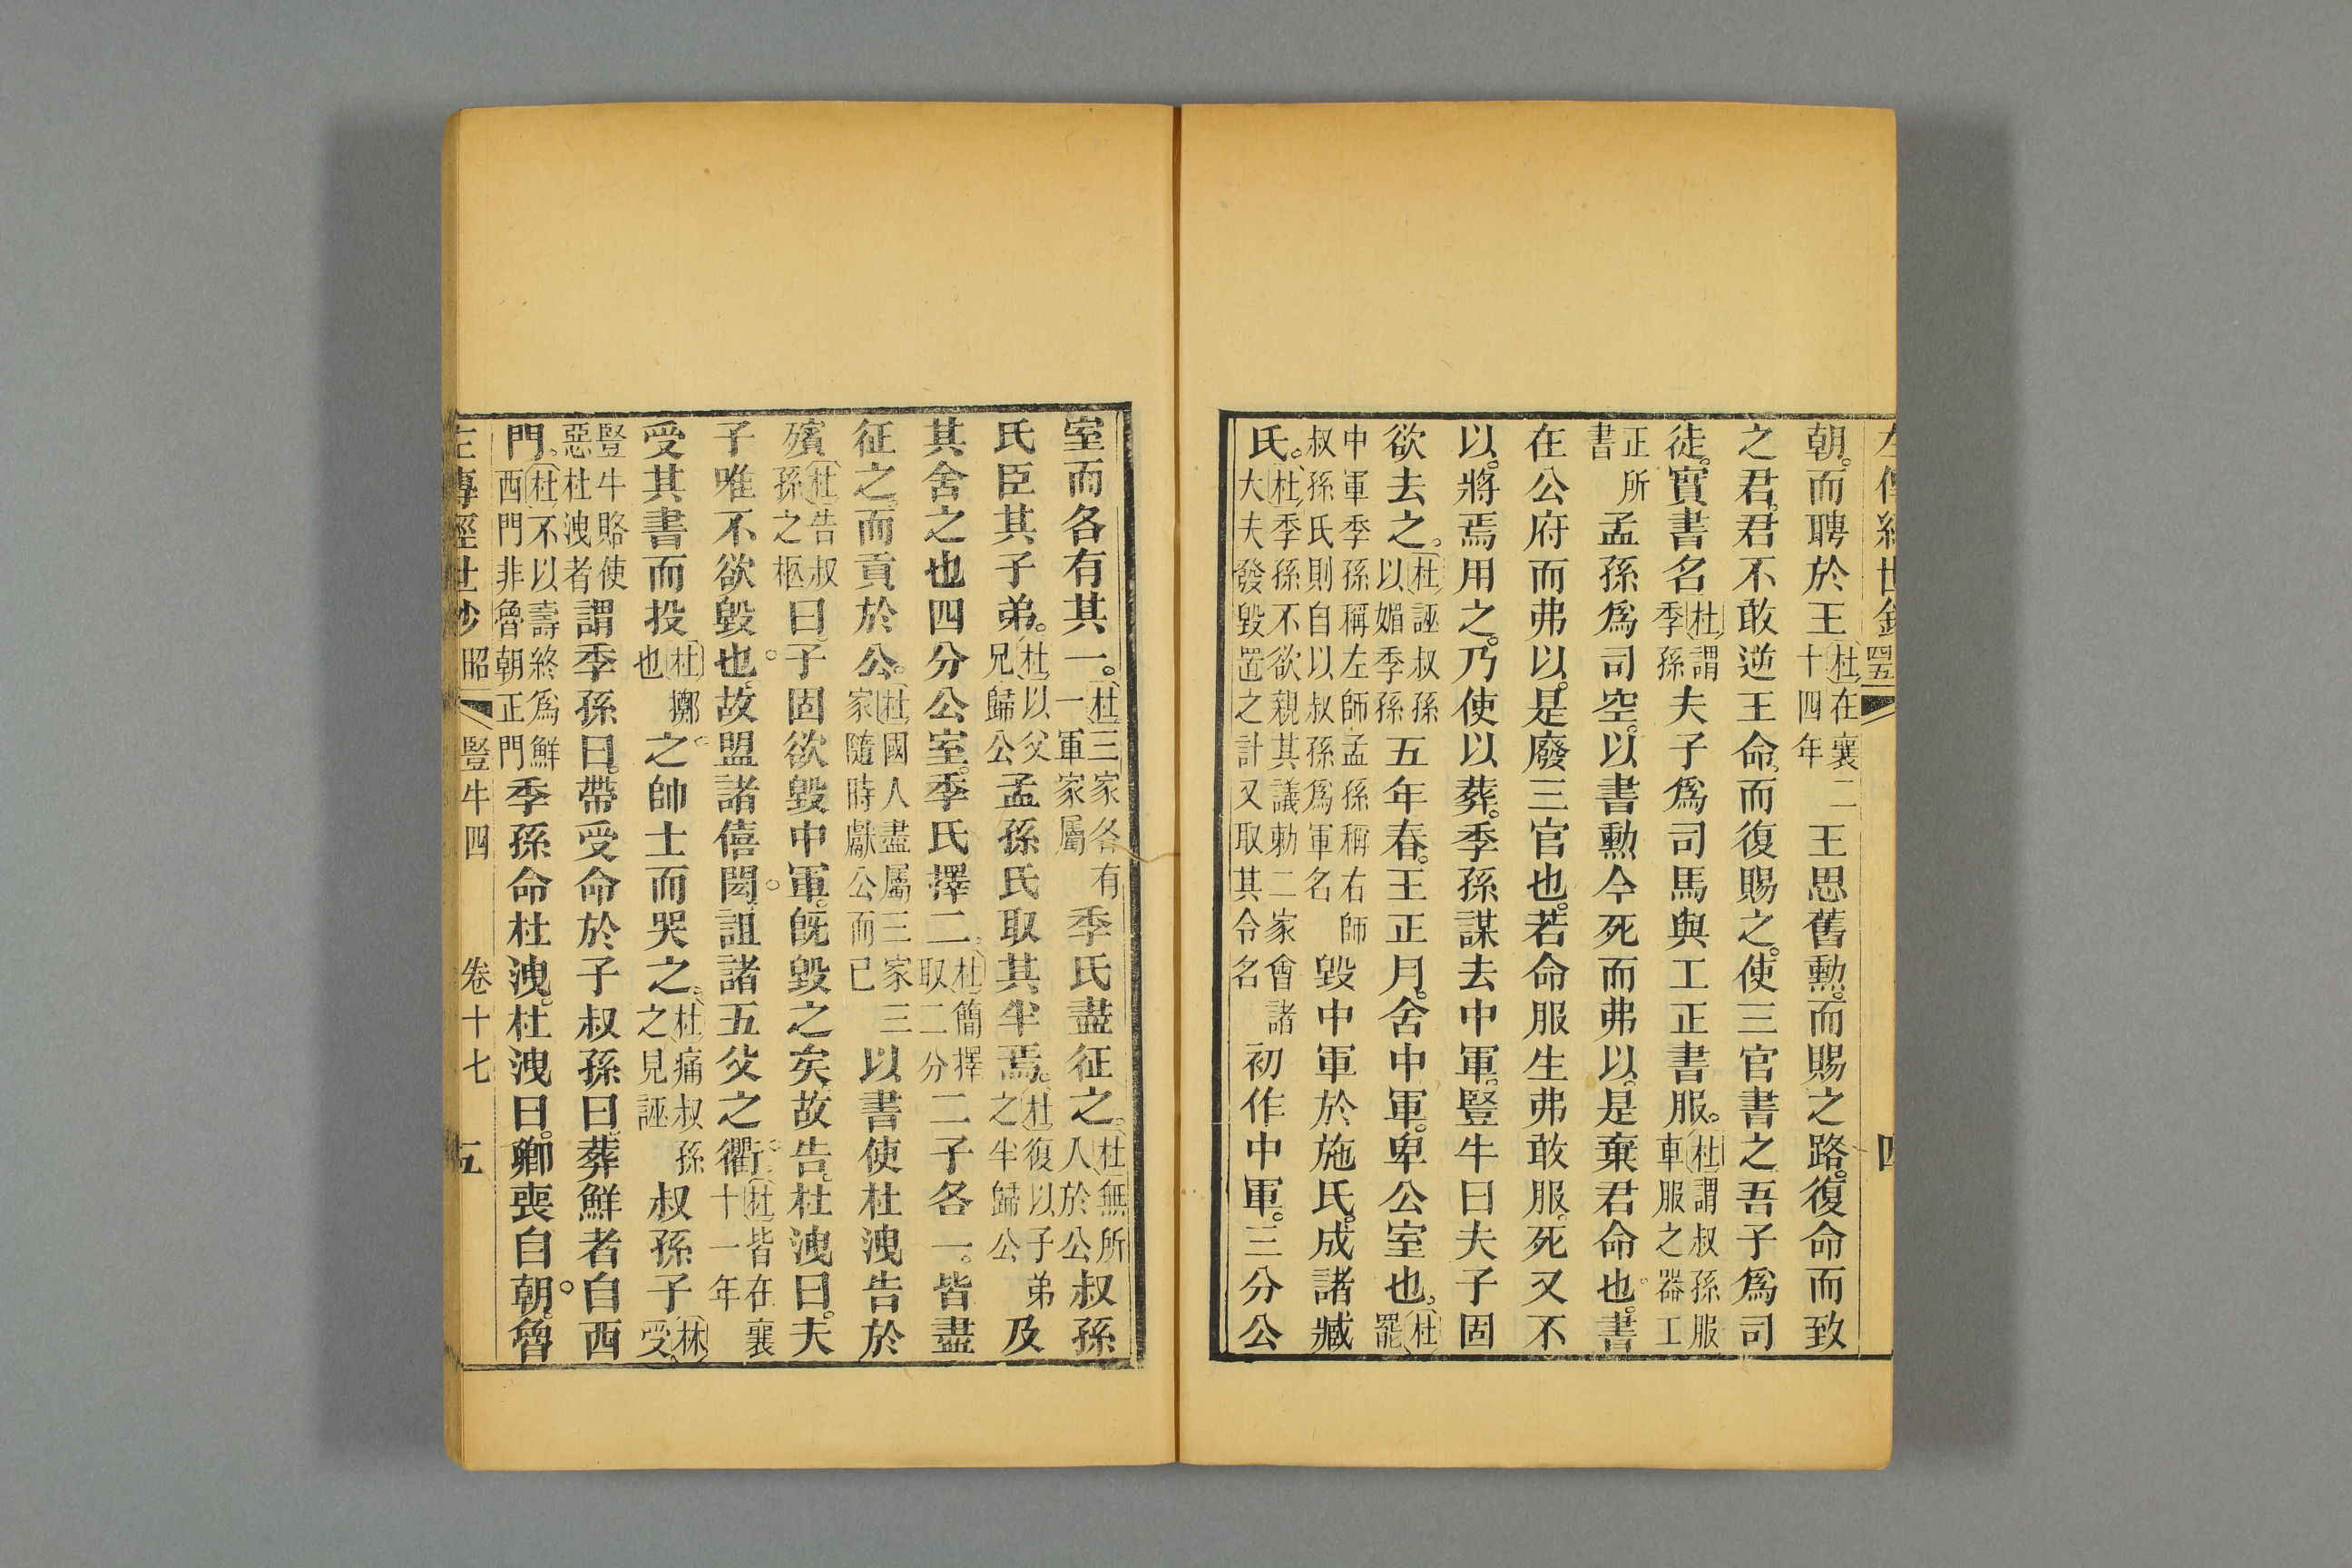 朝。而聘於王杜在襄二十四年王思舊勳。而賜之路。復命而致
之君。君不敢逆王命。而復賜之。使三官書之。吾子爲司
徒。實書名杜謂季孫夫子爲司馬與工正書服。杜謂叔孫服車服之器工
正所書孟孫爲司空。以書勳今死而弗以。是棄君命也。書
在公府而弗以。是廢三官也。若命服生弗敢服。死又不
以。將焉用之。乃使以葬。季孫謀去中軍。豎牛曰夫子固
欲去之。杜誣叔孫以媚季孫五年春。王正月。舍中軍。卑公室也。杜罷
中軍季孫稱左師孟孫稱右師叔孫氏則自以叔孫爲軍名毀中軍於施氏。成諸臧
氏。杜季孫不欲親其議勑二家會諸大夫發毀置之計又取其令名初作中軍。三分公
室而各有其一。杜三家各有一軍家屬季氏盡征之。杜無所人於公叔孫
氏臣其子弟。杜以父兄歸公孟孫氏取其半焉。杜復以子弟之半歸公及
其舍之也四分公室。季氏擇二。杜簡擇取二分二子各一。皆盡
征之。而貢於公。杜國人盡屬三家三家隨時獻公而已以書使杜洩告於
殯杜告叔孫之柩曰。子固欲毀中軍。旣毀之矣。故告。杜洩曰。夫
子唯不欲毀也。故盟諸僖閎。詛諸五父之衢。杜皆在襄十一年
受其書而投杜擲也之。帥士而哭之。杜痛叔孫之見誣叔孫子林受
豎牛賂使惡杜洩者謂季孫曰。帶受命於子叔孫曰。葬鮮者自西
門。杜不以壽終爲鮮西門非魯朝正門季孫命杜洩。杜洩曰。卿喪自朝。魯
昭 豎牛四 卷十七 五